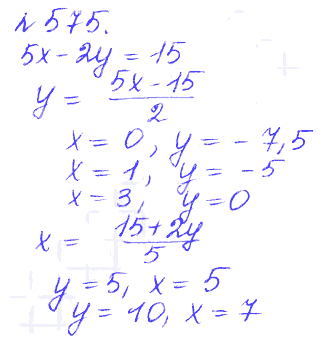 № 575.
5x - 2y = 15
y = (5x - 15)/2
x = 0, y = -7,5
x = 1, y = -5
x = 3, y = 0
x = (15 + 2y)/5
y = 5, x = 5
y = 10, x = 7